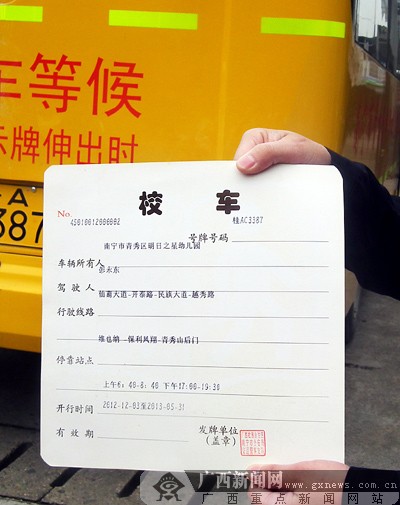 车等候
示牌伸出时
A
3387
校 车
No. 45010612000002
桂AC3387
号牌号码
南宁市青秀区明日之星幼儿园
车辆所有人
彭永东
驾驶人
仙葫大道-开泰路-民族大道-越秀路
行驶线路
维也纳-保利凤翔-青秀山后门
停靠站点
上午6:40-8:40 下午17:00-19:30
开行时间
2012-12-03至2013-05-31
有效期
发牌单位
(盖章)
广西新闻网
www.gxnews.com.cn
广西重点新闻网站